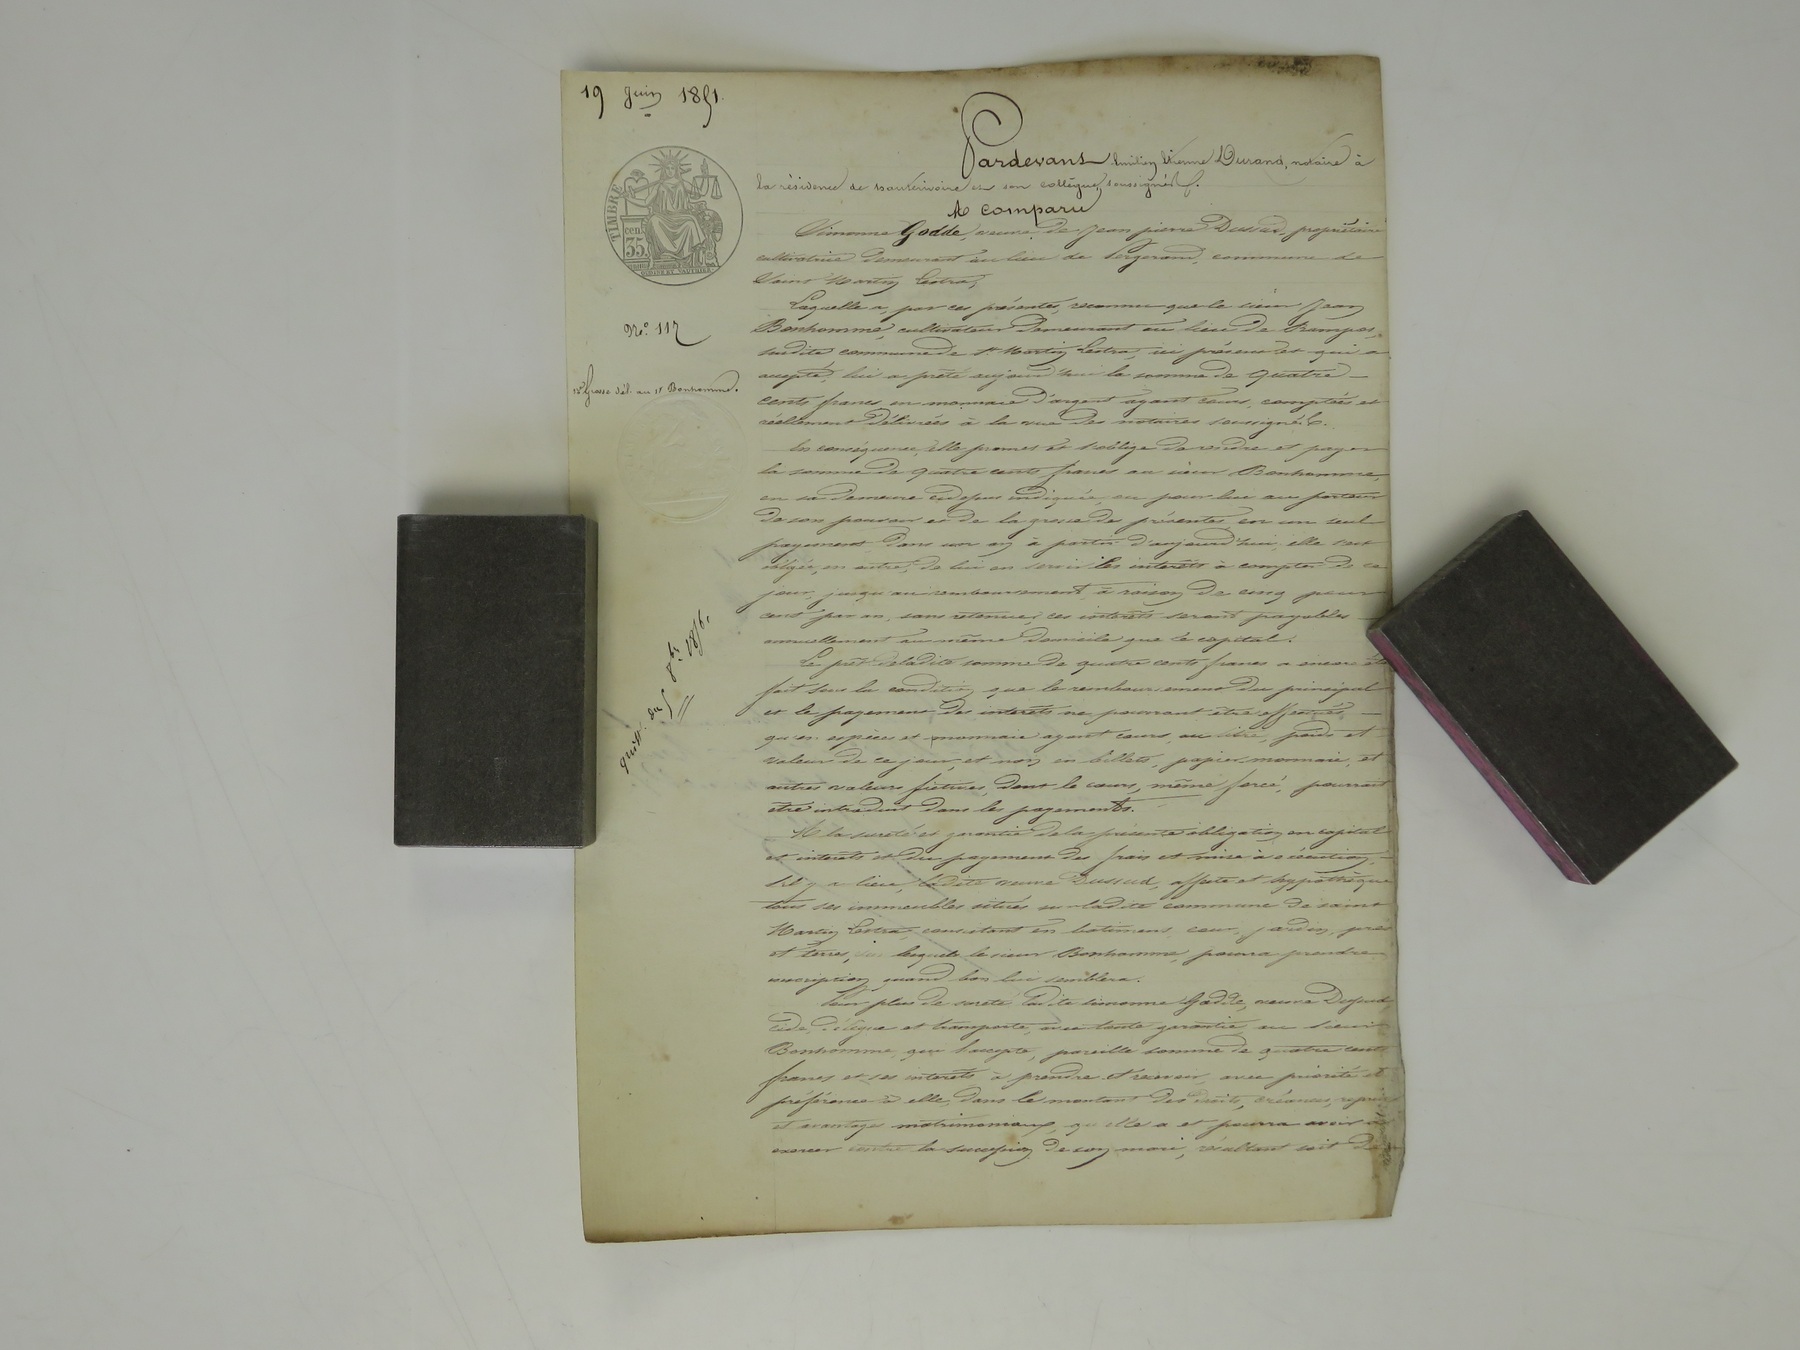 19 Juin 1851.
TIMBRE
cent.
35
N.o 117
1re Grosse dél. au sr Bonhomme.
quitt. du 5 8bre 1856.
Pardevant Emilien Etienne Durand, notaire à
la résidence de                et son collègue, soussignés.
A comparu
Simonne Godde, veuve de Jean pierre Dussud, propriétaire
cultivatrice demeurant au lieu de           commune de
Saint Martin Lestra,
Laquelle a, par ces présentes, reconnu que le sieur Jean
Bonhomme, cultivateur demeurant au lieu de           ,
susdite commune de St Martin Lestra, ici présent et qui a
accepté, lui a prêté aujourd'hui la somme de quatre
cents francs, en monnaie d'argent ayant cours, comptés et
réellement délivrées à la vue des notaires soussignés.
En conséquence, elle promet et s'oblige de rendre et payer
la somme de quatre cents francs au sieur Bonhomme,
en sa demeure cidessus indiquée, ou pour lui au porteur
de son pouvoir et de la grosse des présentes, en un seul
payement, dans un an à partir d'aujourd'hui; elle sera
obligée, en outre, de lui en servir les intérêts à compter de ce
jour, jusqu'au remboursement à raison de cinq pour
cent par an, sans retenue; ces intérêts seront payables
annuellement au même domicile que le capital.
Le prêt deladite somme de quatre cents francs a encore été
fait sous la condition que le remboursement du principal
et le payement des intérêts ne pourront être effectués,
qu'en espèces et monnaie ayant cours, au titre, poids et
valeur de ce jour, et non en billets, papier monnaie, et
autres valeurs fictives, dont le cours, même forcé, pourrait
être introduit dans les payements.
A la sureté et garantie dela présente obligation en capital
et intérêts et du payement des frais et mise à exécution,
s'il y a lieu, ladite veuve Dussud, affecte et hypothèque
tous ses immeubles situés sur ladite commune de saint
Martin Lestra, consistant en batiments, cour, jardin, prés
et terres, sur lesquels le sieur Bonhomme, pourra prendre
inscription quand bon lui semblera.
Pour plus de sureté ladite simonne Godde, veuve Dussud,
cède, délègue et transporte, avec toute garantie, au sieur
Bonhomme, qui l'accepte, pareille somme de quatre cents
francs et ses intérêts à prendre et recevoir, avec priorité et
préférence à elle, dans le montant des droits, créances, reprises
et avantages matrimoniaux, qu'elle a et pourra avoir à
exercer contre la succession de son mari, résultant soit de